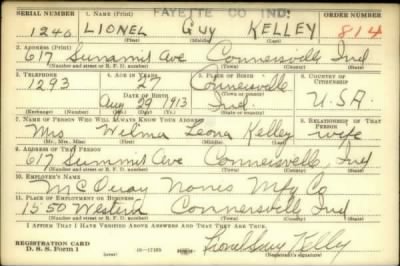 FAYETTE CO IND.
SERIAL NUMBER 1. NAME (Print) ORDER NUMBER
1240 LIONEL GUY KELLEY 814
(First) (Middle) (Last)
2. ADDRESS (Print)
617 Summit Ave Connersville Ind
(Number and street or R. F. D. number) (Town) (County) (State)
3. TELEPHONE 4. AGE IN YEARS 5. PLACE OF BIRTH 6. COUNTRY OF CITIZENSHIP
1293 27 Connersville
DATE OF BIRTH
Aug 29 1913 Ind. U.S.A.
(Exchange) (Number) (Mo.) (Day) (Yr.) (State or country)
7. NAME OF PERSON WHO WILL ALWAYS KNOW YOUR ADDRESS 8. RELATIONSHIP OF THAT PERSON
Mrs Wilma Leona Kelley wife
(Mr., Mrs., Miss) (First) (Middle) (Last)
9. ADDRESS OF THAT PERSON
617 Summit Ave Connersville, Ind
(Number and street or R. F. D. number) (Town) (County) (State)
10. EMPLOYER'S NAME
McQuay Norris Mfg Co
11. PLACE OF EMPLOYMENT OR BUSINESS
1550 Western Connersville Ind
(Number and street or R. F. D. number) (Town) (County) (State)
I AFFIRM THAT I HAVE VERIFIED ABOVE ANSWERS AND THAT THEY ARE TRUE.
REGISTRATION CARD
D. S. S. Form 1 (over) 16—17105 Lionel Guy Kelley
(Registrant's signature)